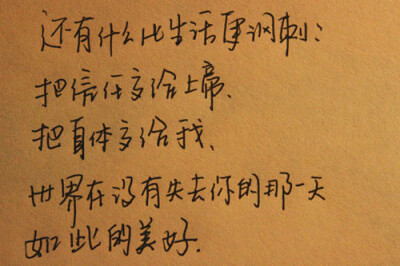 还有什么比生活更讽刺:
把信任交给上帝、
把身体交给我、
世界在没有失去你的那一天
如此的美好.